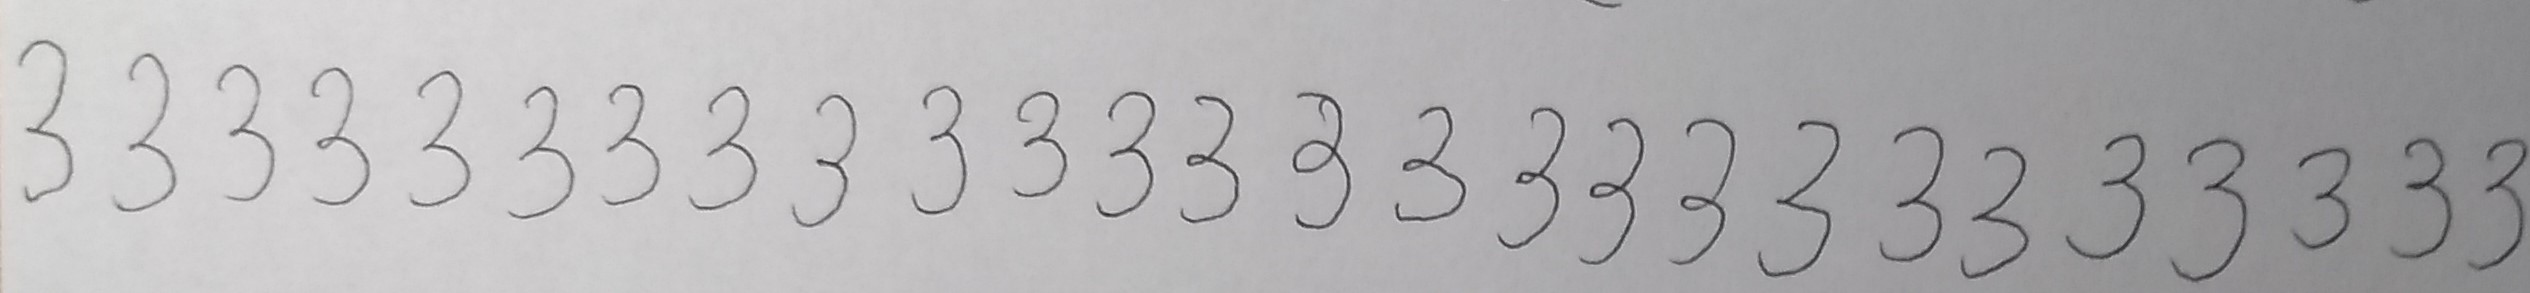 3 3 3 3 3 3 3 3 3 3 3 3 3 3 3 3 3 3 3 3 3 3 3 3 3 3